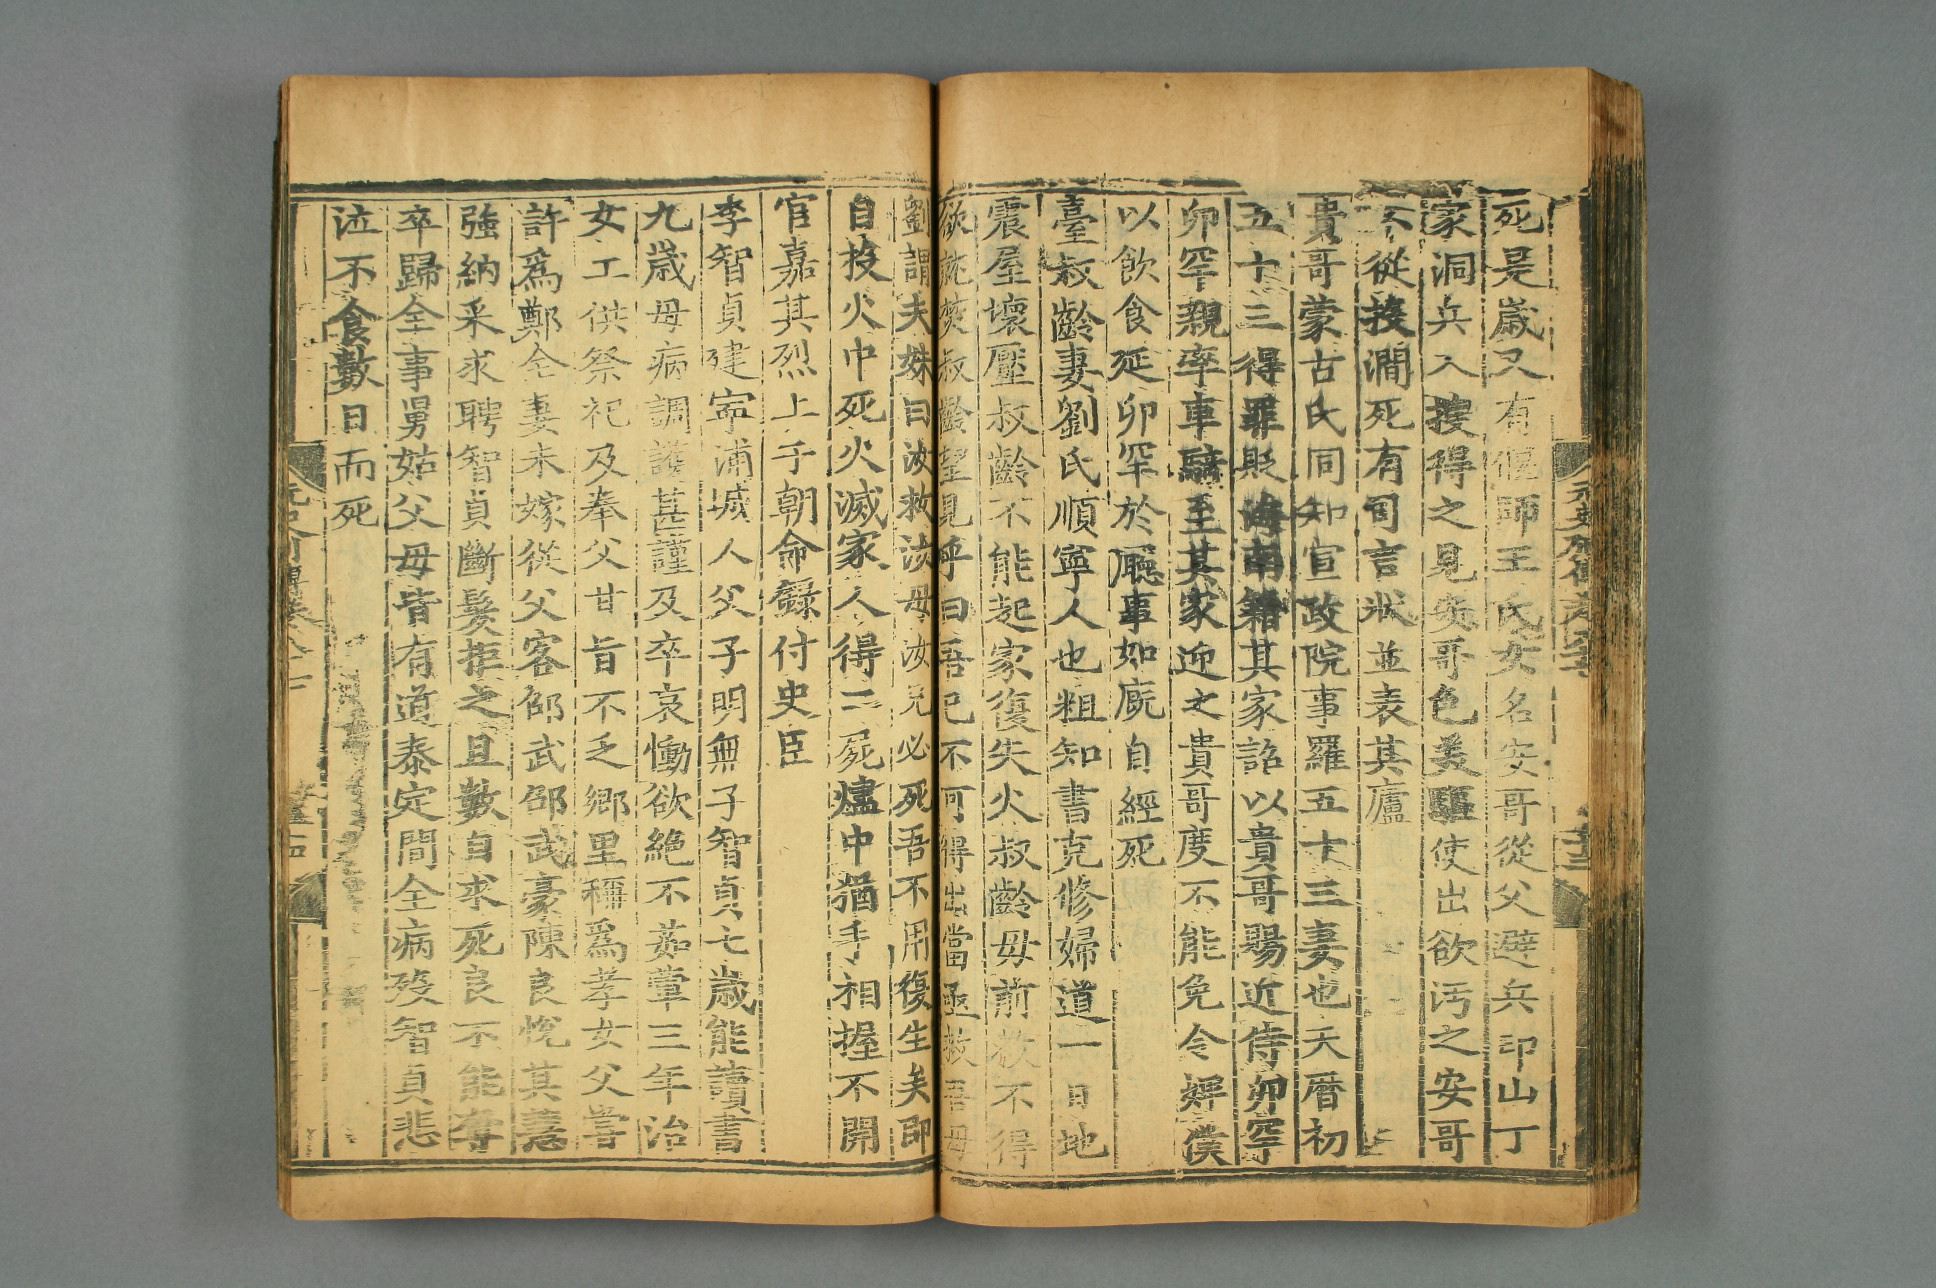 死是歲又有偃師王氏女名安哥從父避兵邙山丁
家洞兵入搜得之見安哥色美驅使出欲汚之安哥
不從投澗死有司言狀並表其廬
貴哥蒙古氏同知宣政院事羅五十三妻也天曆初
五十三得罪貶海南籍其家詔以貴哥賜近侍卯罕
卯罕親率車騎至其家迎之貴哥度不能免令婢僕
以飲食延卯罕於廳事如廁自經死
臺叔齡妻劉氏順寧人也粗知書克修婦道一日地
震屋壞壓叔齡不能起家復失火叔齡母前救不得
欲就焚叔齡望見呼曰吾已不可得出當亟救吾母
劉謂夫妹曰汝救汝母汝兄必死吾不用復生矣即
自投火中死火滅家人得二屍燼中猶手相握不開
官嘉其烈上于朝命錄付史臣
李智貞建寧浦城人父子明無子智貞七歲能讀書
九歲母病調護甚謹及卒哀慟欲絶不茹葷三年治
女工供祭祀及奉父甘旨不乏鄉里稱爲孝女父嘗
許爲鄭全妻未嫁從父客邵武邵武豪陳良悅其慧
強納采求聘智貞斷髮拒之且數自求死良不能奪
卒歸全事舅姑父母皆有道泰定間全病歿智貞悲
泣不食數日而死